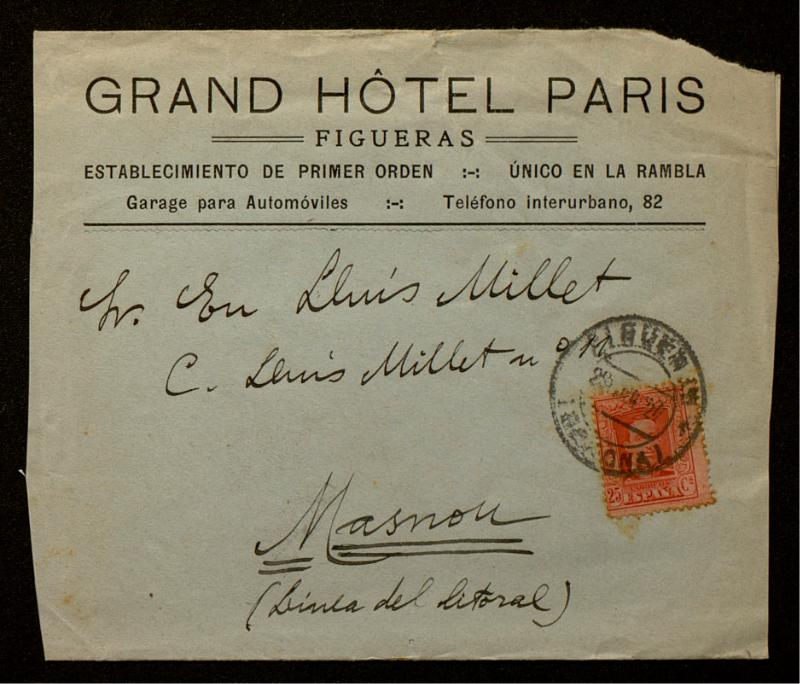 GRAND HÔTEL PARIS
FIGUERAS
ESTABLECIMIENTO DE PRIMER ORDEN :-: ÚNICO EN LA RAMBLA
Garage para Automóviles :-: Teléfono interurbano, 82
Sr. En Lluís Millet
C. Lluís Millet nº
Masnou
(Línea del litoral)
FIGUER
CORREOS
25 ESPAÑA Cs